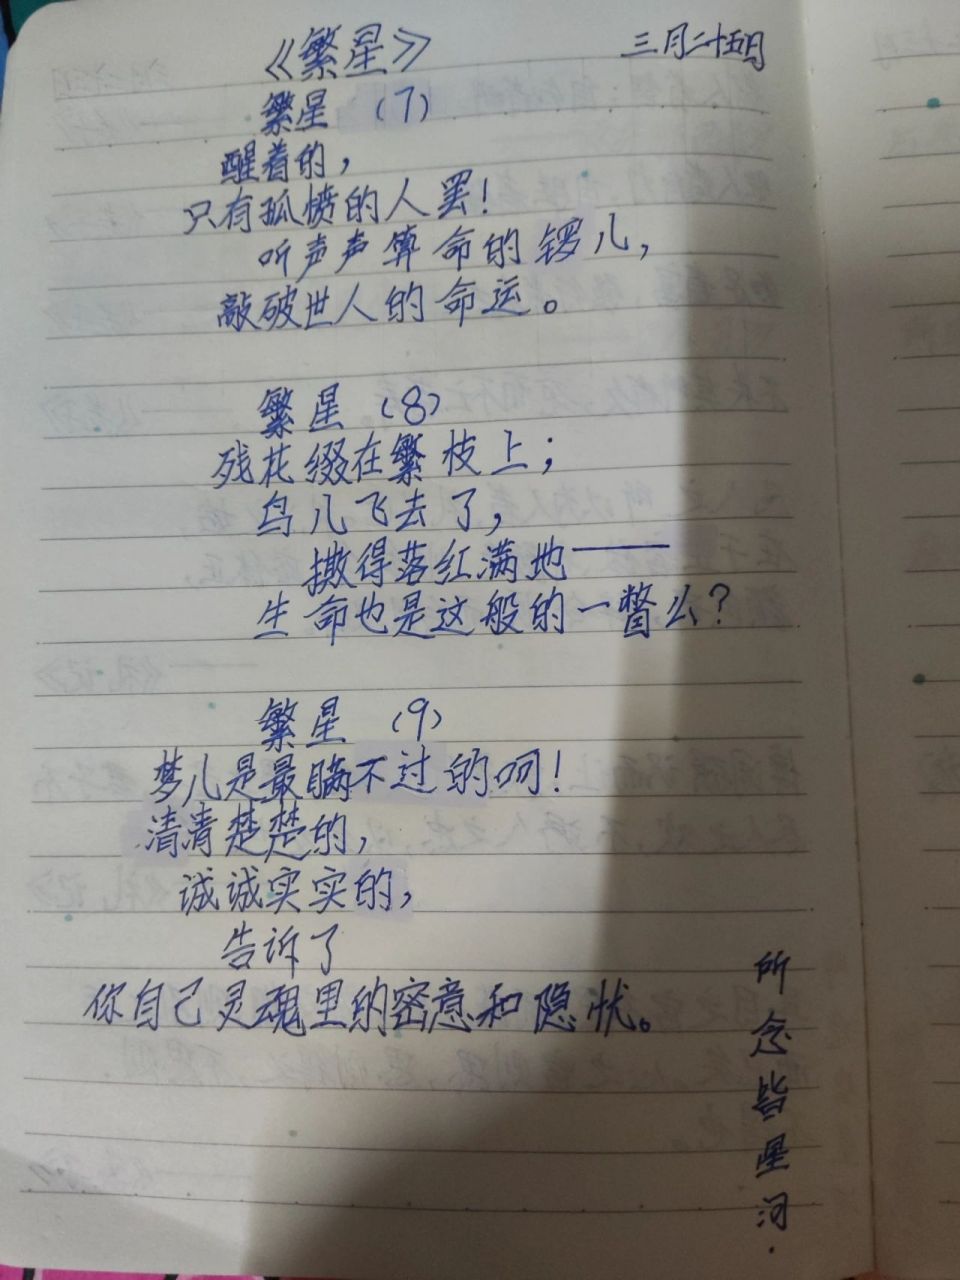 《繁星》 三月二十五日
繁星 (7)
醒着的，
只有孤愤的人罢！
听声声算命的锣儿，
敲破世人的命运。
繁星 (8)
残花缀在繁枝上；
鸟儿飞去了，
撒得落红满地——
生命也是这般的一瞥么？
繁星 (9)
梦儿是最瞒不过的呵！
清清楚楚的，
诚诚实实的，
告诉了
你自己灵魂里的密意和隐忧。
所念皆星河.